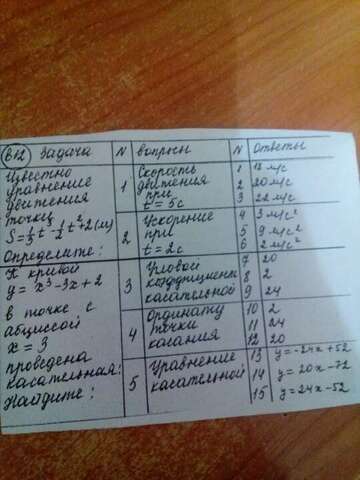 В12 Задача N вопросы N ответы
Известно
уравнение
движения
точки
S=1/3 t - 1/2 t²+2 (м)
Определите:
1 Скорость
движения
при
t = 5c
1 18 м/с
2 20 м/с
3 22 м/с
2 Ускорение
при
t = 2c
4 3 м/с²
5 9 м/с²
6 2 м/с²
К кривой
y = x³-3x+2
в точке с
абциссой
x = 3
проведена
касательная.
Найдите:
3 Угловой
коэффициент
касательной
7 20
8 2
9 24
4 Ординату
точки
касания
10 2
11 24
12 20
5 Уравнение
касательной
13 y=-24x+52
14 y=20x-72
15 y=24x-52